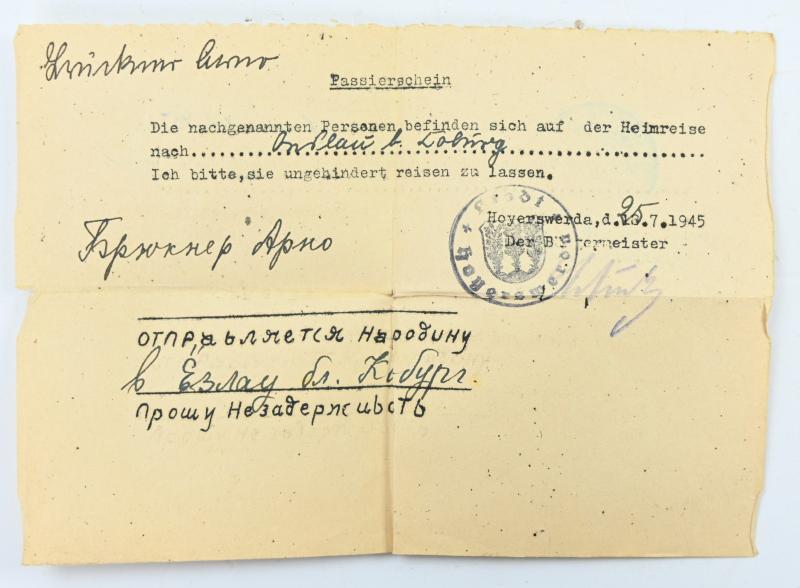 Brückner Arno
Passierschein
Die nachgenannten Personen befinden sich auf der Heimreise
nach Oeslau b. Coburg
Ich bitte,sie ungehindert reisen zu lassen.
Stadt Hoyerswerda
Hoyerswerda,d. 25.7.1945
Der Bürgermeister
Брюкнер Арно
отправляется Народину
в Ёзлау бл. Кобург.
Прошу Незадерживать